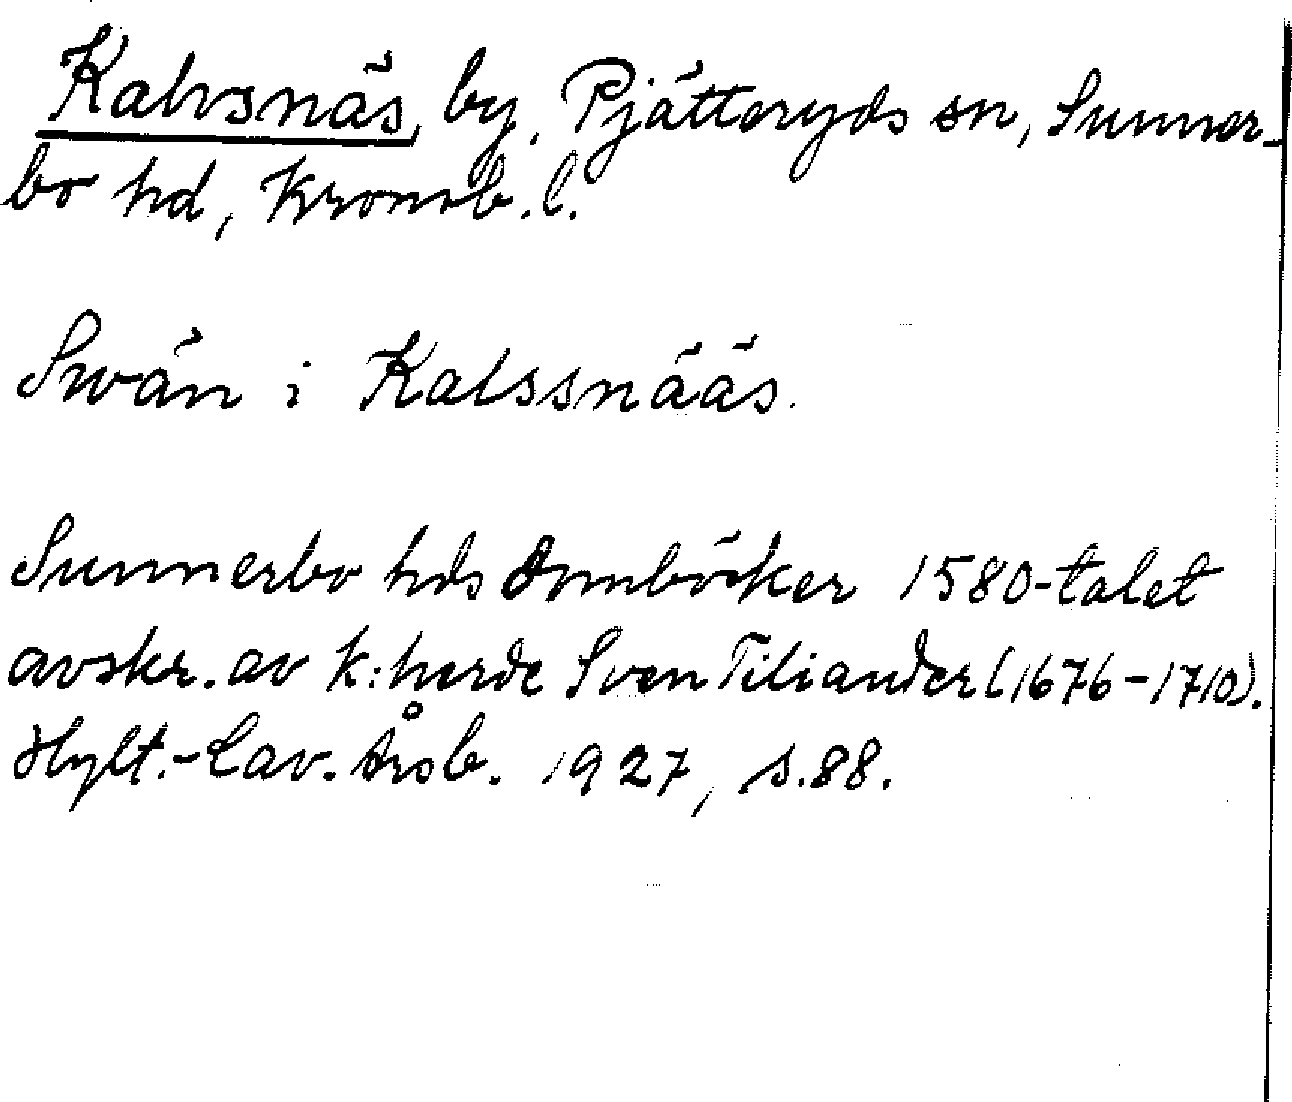 Kalvsnäs, by, Pjätteryds sn, Sunner-
bo hd, Kronob. l.
Swän i Kalssnääs.
Sunnerbo hds domböcker 1580-talet
avskr. av k:herde Sven Tiliander (1676-1710).
Hylt.-Cav. Årsb. 1927, s. 88.